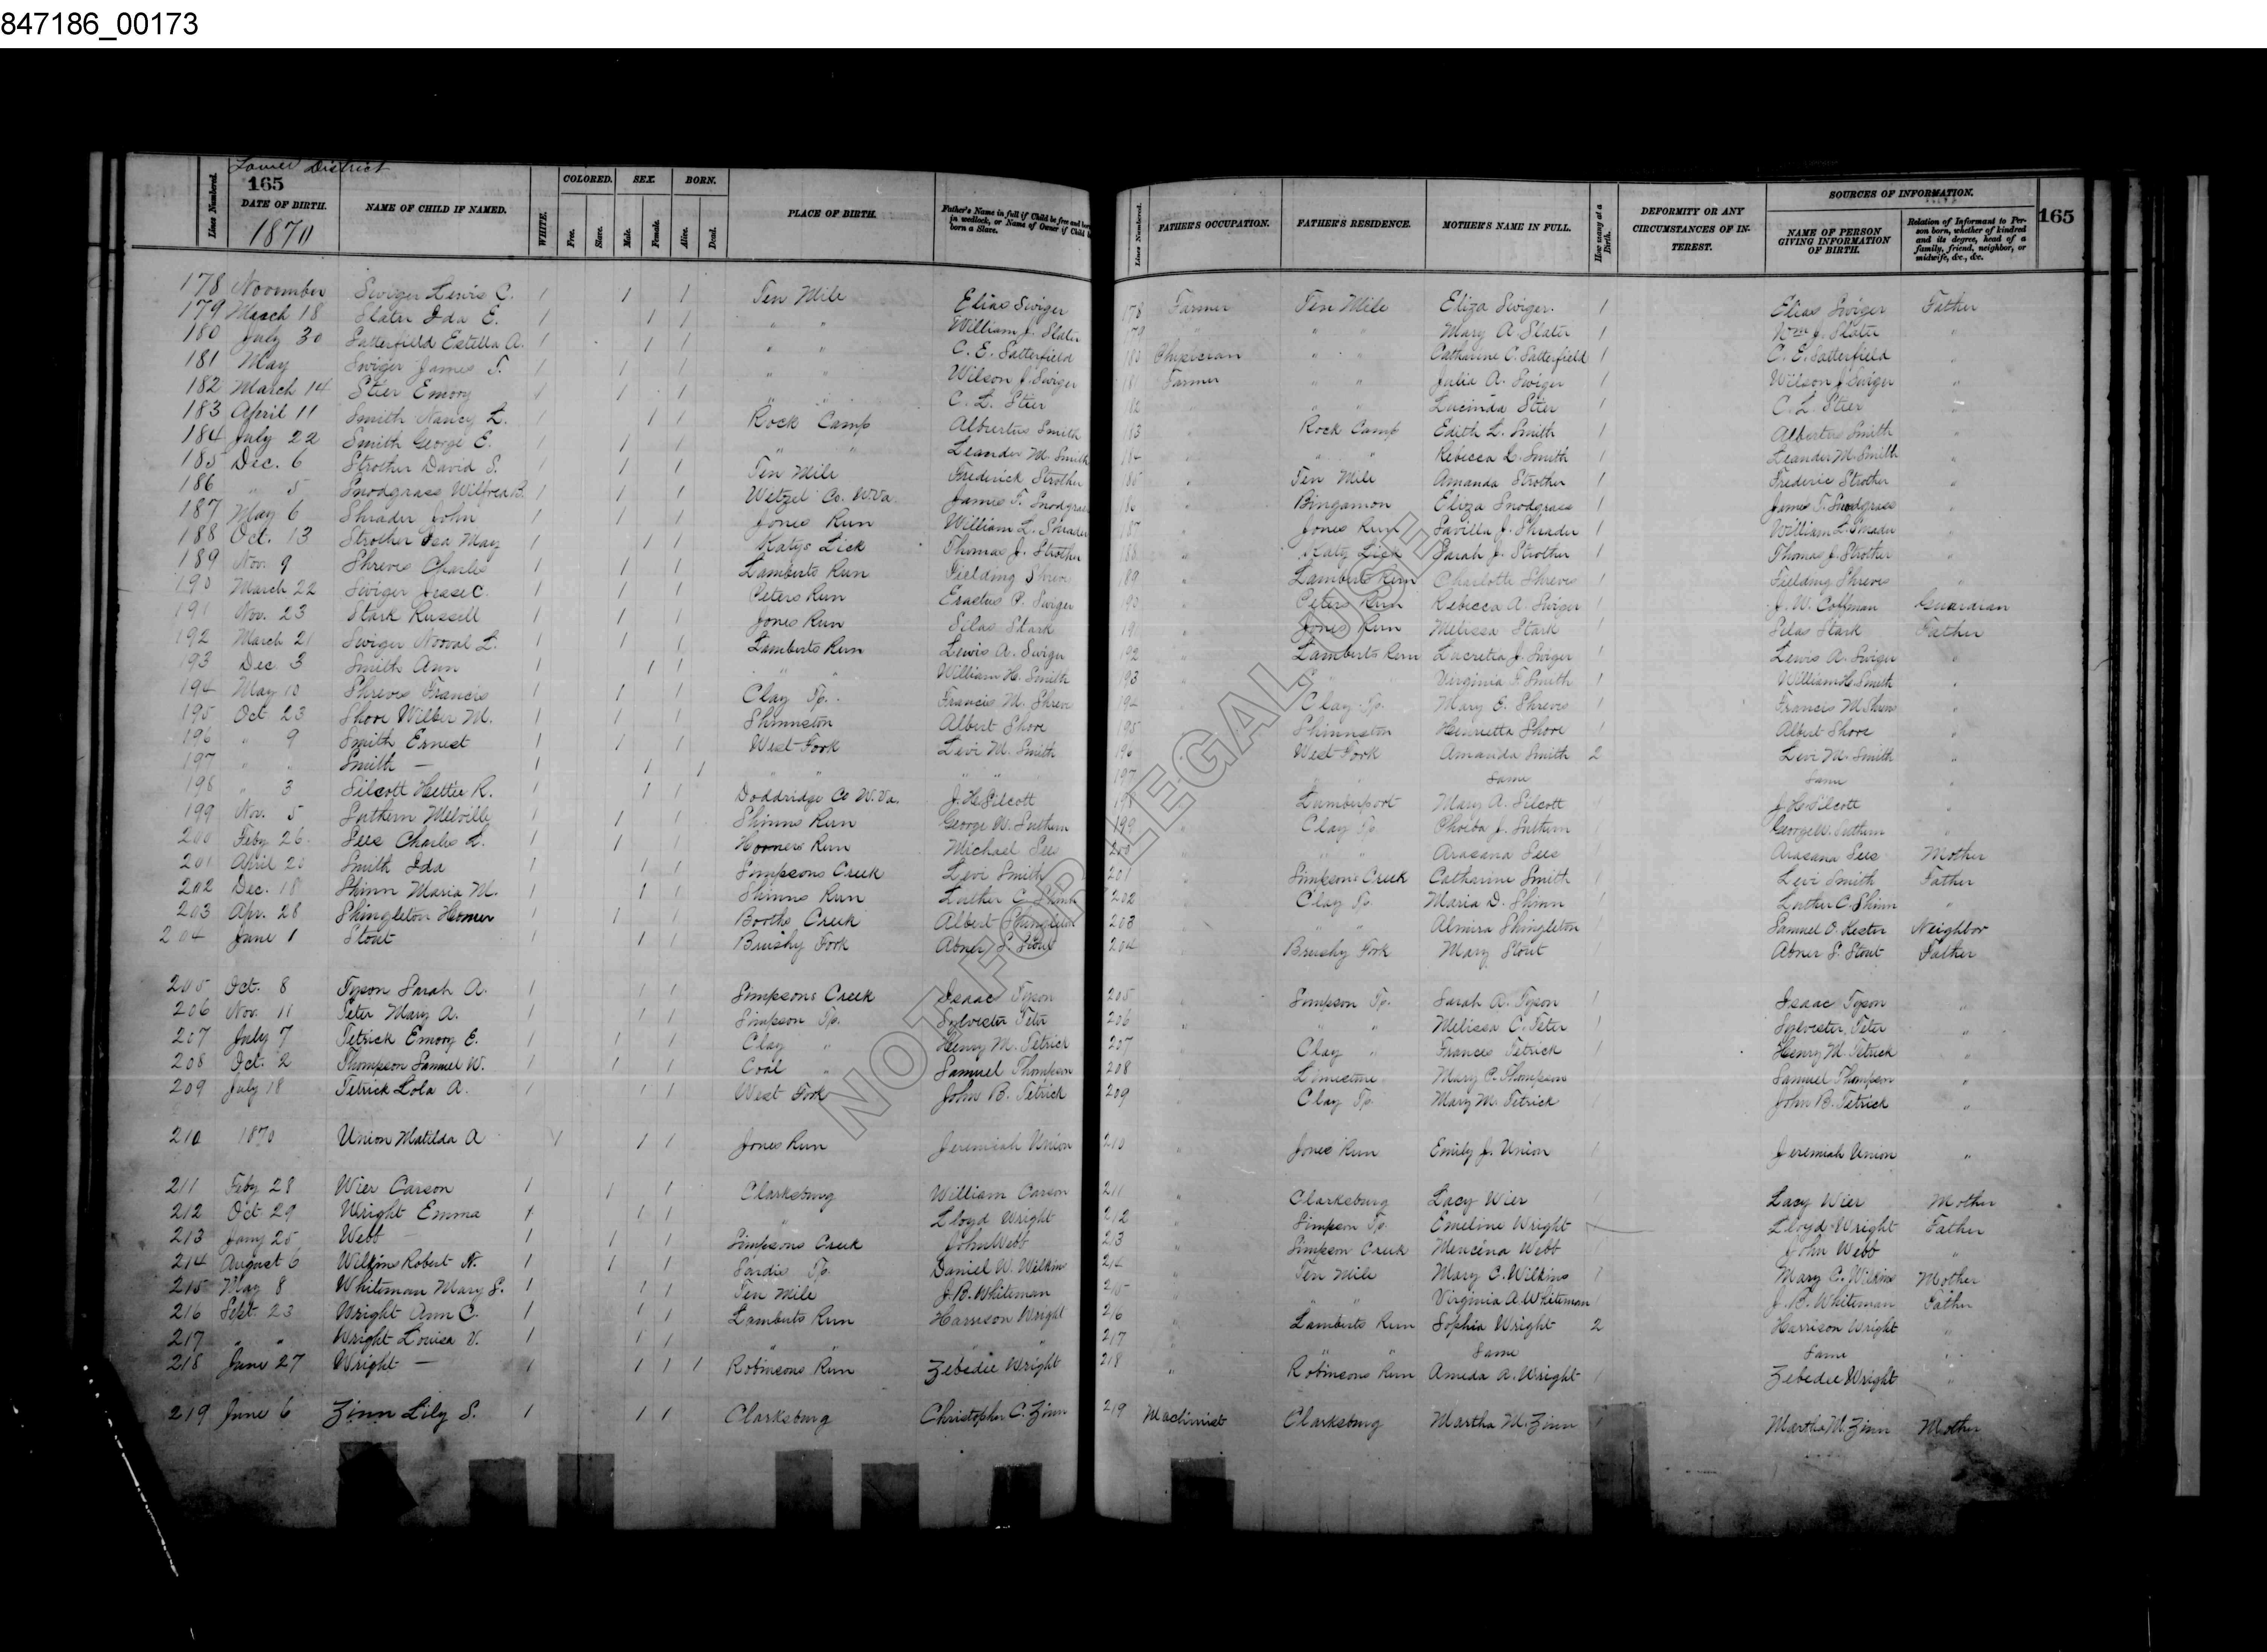 847186_00173
Lower District
165
Lines Numbered. DATE OF BIRTH. NAME OF CHILD IF NAMED. WHITE. COLORED. Free. Slave. SEX. Male. Female. BORN. Alive. Dead. PLACE OF BIRTH. Father's Name in full if Child be free and born in wedlock, or Name of Owner if Child be born a Slave.
Lines Numbered. FATHER'S OCCUPATION. FATHER'S RESIDENCE. MOTHER'S NAME IN FULL. How many at a Birth. DEFORMITY OR ANY CIRCUMSTANCES OF INTEREST. SOURCES OF INFORMATION. NAME OF PERSON GIVING INFORMATION OF BIRTH. Relation of Informant to Person born, whether of kindred and its degree, head of a family, friend, neighbor, or midwife, &c., &c. 165
1870
178 November Swiger Lewis C. 1 1 1 Ten Mile Elias Swiger 178 Farmer Ten Mile Eliza Swiger. 1 Elias Swiger Father
179 March 18 Slater Ida E. 1 1 1 " " William J. Slater 179 " " " Mary A Slater 1 Wm J. Slater "
180 July 30 Satterfield Estella A. 1 1 1 " " C. E. Satterfield 180 Physician " " Catharine C. Satterfield 1 C. E. Satterfield "
181 May Swiger James T. 1 1 1 " " Wilson J. Swiger 181 Farmer " " Julia A. Swiger 1 Wilson J Swiger "
182 March 14 Stier Emory 1 1 1 " " C. L. Stier 182 " " " Lucinda Stier 1 C. L. Stier "
183 April 11 Smith Nancy L. 1 1 1 Rock Camp Albertus Smith 183 " Rock Camp Edith L. Smith 1 Albertus Smith "
184 July 22 Smith George E. 1 1 1 " " Leander M. Smith 184 " " " Rebecca L. Smith 1 Leander M. Smith "
185 Dec. 6 Strother David S. 1 1 1 Ten Mile Frederick Strother 185 " Ten Mile Amanda Strother 1 Frederic Strother "
186 " 5 Snodgrass Wilfred B. 1 1 1 Wetzel Co. W.Va. James T. Snodgrass 186 " Bingamon Eliza Snodgrass 1 James T. Snodgrass "
187 May 6 Shrader John 1 1 1 Jones Run William L. Shrader 187 " Jones Run Savilla J. Shrader 1 William L. Shrader "
188 Oct. 13 Strother Ida May 1 1 1 Katys Lick Thomas J. Strother 188 " Katy Lick Sarah J. Strother 1 Thomas J. Strother "
189 Nov. 9 Shreves Charles 1 1 1 Lamberts Run Fielding Shreves 189 " Lamberts Run Charlotte Shreves 1 Fielding Shreves "
190 March 22 Swiger Jesse C. 1 1 1 Peters Run Erastus P. Swiger 190 " Peters Run Rebecca A. Swiger 1 J. W. Coffman Guardian
191 Nov. 23 Stark Russell 1 1 1 Jones Run Silas Stark 191 " Jones Run Melissa Stark 1 Silas Stark Father
192 March 21 Swiger Norval L. 1 1 1 Lamberts Run Lewis A. Swiger 192 " Lamberts Run Lucretia J. Swiger 1 Lewis A. Swiger "
193 Dec 3 Smith Ann 1 1 1 " " William H. Smith 193 " " " Virginia F Smith 1 William H. Smith "
194 May 10 Shreves Francis 1 1 1 Clay Tp. Francis M. Shreves 194 " Clay Tp. Mary E. Shreves 1 Francis M Shreves "
195 Oct 23 Shore Wilber M. 1 1 1 Shinnston Albert Shore 195 " Shinnston Henrietta Shore 1 Albert Shore "
196 " 9 Smith Ernest 1 1 1 West Fork Levi M. Smith 196 " West Fork Amanda Smith 2 Levi M. Smith "
197 " " Smith — 1 1 1 " " " " 197 " " " Same Same "
198 " 3 Silcott Hettie R. 1 1 1 Doddridge Co W.Va. J. H. Silcott 198 " Lumberport Mary A. Silcott 1 J. H. Silcott "
199 Nov. 5 Suthern Melville 1 1 1 Shinns Run George W. Suthern 199 " Clay Tp. Phoeba J. Suthern 1 George W. Suthern "
200 Feby 26. Sees Charles K. 1 1 1 Horners Run Michael Sees 200 " " " Arasana Sees 1 Arasana Sees Mother
201 April 20 Smith Ida 1 1 1 Simpsons Creek Levi Smith 201 " Simpsons Creek Catharine Smith 1 Levi Smith Father
202 Dec. 18 Shinn Maria M. 1 1 1 Shinns Run Luther C. Shinn 202 " Clay Tp. Maria D. Shinn 1 Luther C. Shinn "
203 Apr. 28 Shingleton Homer 1 1 1 Booths Creek Albert Shingleton 203 " " " Almira Shingleton 1 Samuel O. Kester Neighbor
204 June 1 Stout 1 1 1 Brushy Fork Abner S. Stout 204 " Brushy Fork Mary Stout 1 Abner S. Stout Father
205 Oct. 8 Tyson Sarah A. 1 1 1 Simpsons Creek Isaac Tyson 205 " Simpson Tp. Sarah A. Tyson 1 Isaac Tyson "
206 Nov. 11 Teter Mary A. 1 1 1 Simpson Tp. Sylvester Teter 206 " " " Melissa C. Teter 1 Sylvester Teter "
207 July 7 Tetrick Emory E. 1 1 1 Clay " Henry M. Tetrick 207 " Clay " Frances Tetrick 1 Henry M. Tetrick "
208 Oct. 2 Thompson Samuel W. 1 1 1 Coal " Samuel Thompson 208 " Limestone Mary C. Thompson Samuel Thompson "
209 July 18 Tetrick Lola A. 1 1 1 West Fork John B. Tetrick 209 " Clay Tp. Mary M. Tetrick 1 John B. Tetrick "
210 1870 Union Matilda A 1 1 1 Jones Run Jeremiah Union 210 " Jones Run Emily J. Union 1 Jeremiah Union "
211 Feby 28 Wier Carson 1 1 1 Clarksburg William Carson 211 " Clarksburg Lacy Wier 1 Lacy Wier Mother
212 Oct. 29 Wright Emma 1 1 1 " Lloyd Wright 212 Simpson Tp. Emeline Wright 1 Lloyd Wright Father
213 Jany 25 Webb — 1 1 1 Simpsons Creek John Webb 213 " Simpson Creek Mencena Webb 1 John Webb "
214 August 6 Wilkins Robert N. 1 1 1 Sardis Tp. Daniel W. Wilkins 214 " Ten Mile Mary C. Wilkins 1 Mary C. Wilkins Mother
215 May 8 Whiteman Mary S. 1 1 1 Ten Mile J. B. Whiteman 215 " " " Virginia A. Whiteman 1 J. B. Whiteman Father
216 Sept. 23 Wright Ann C. 1 1 1 Lamberts Run Harrison Wright 216 " Lamberts Run Sophia Wright 2 Harrison Wright "
217 " " Wright Louisa V. 1 1 1 " " " " 217 " " " Same Same "
218 June 27 Wright — 1 1 1 1 Robinsons Run Zebedee Wright 218 " Robinsons Run Ameda A. Wright 1 Zebedee Wright "
219 June 6 Zinn Lily S. 1 1 1 Clarksburg Christopher C. Zinn 219 Machinist Clarksburg Martha M. Zinn 1 Martha M. Zinn Mother
NOT FOR LEGAL USE